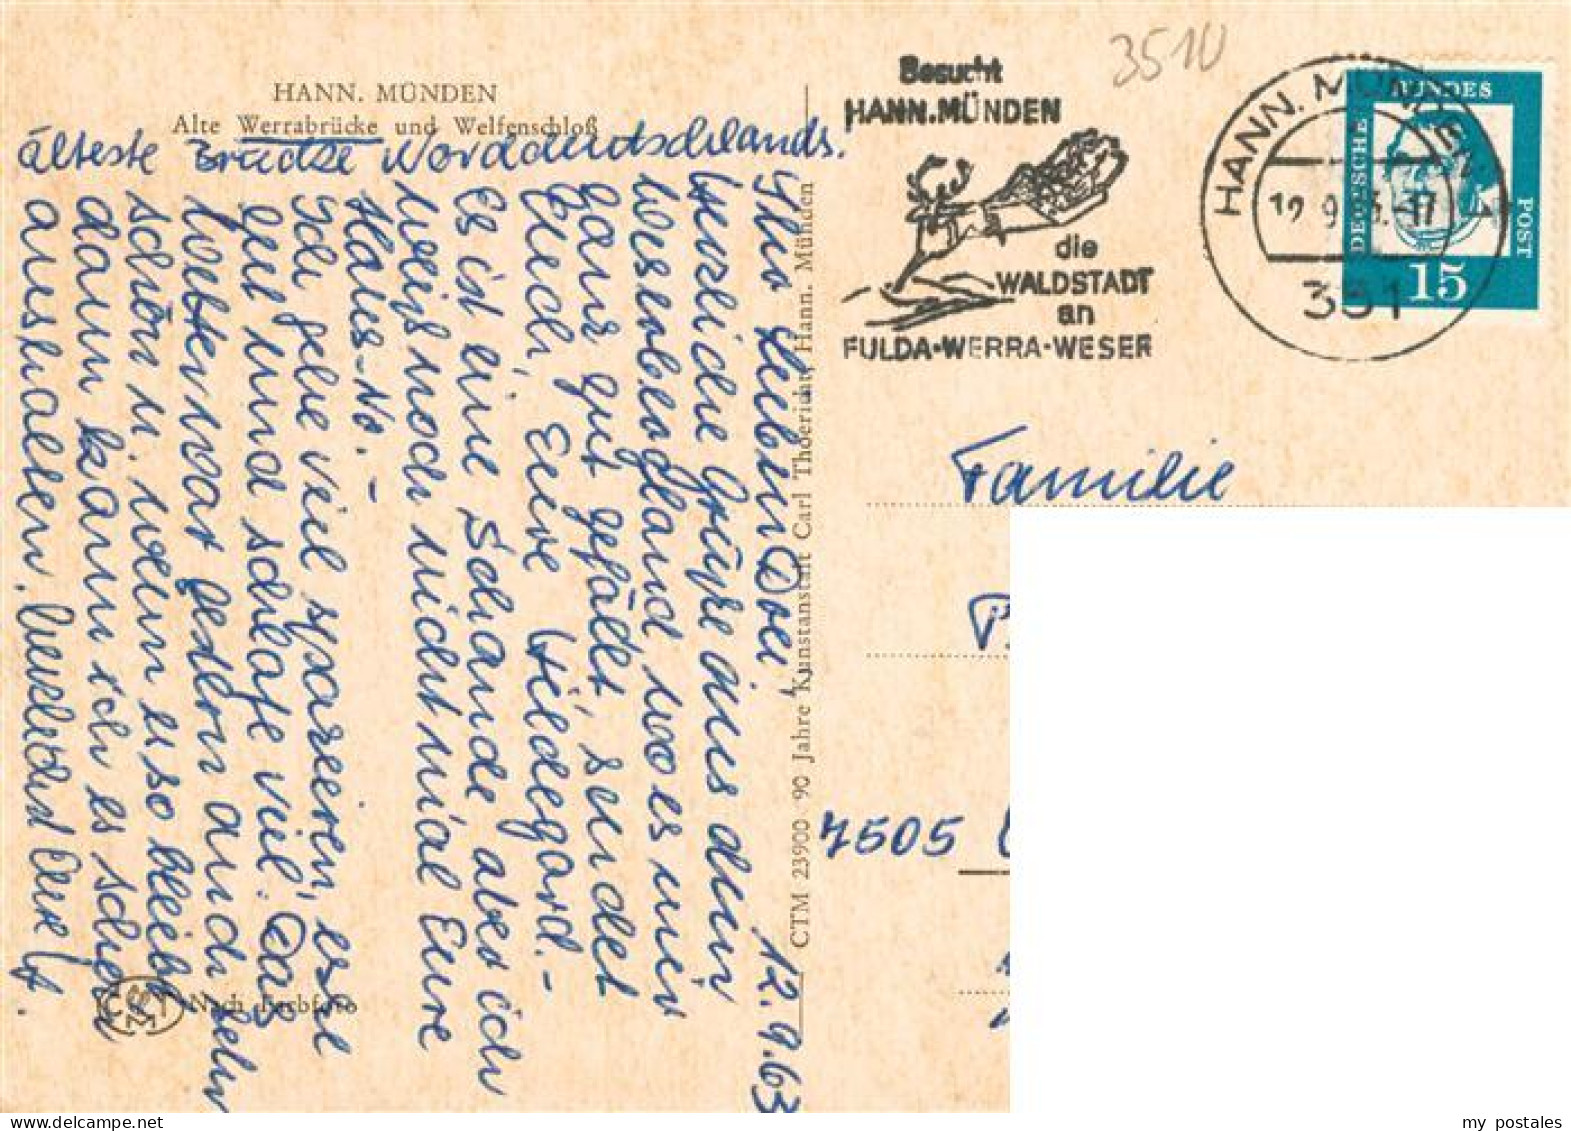 HANN. MÜNDEN
Alte Werrabrücke und Welfenschloß
älteste Brücke Norddeutschlands.
12.9.63
Ihr Lieben
herzliche Grüße aus dem
Weserbergland, wo es mir
ganz gut gefällt, sendet
Euch, Eure Hildegard. -
Es ist eine Schande aber ich
weiß noch nicht mal Eure
Haus-No. -
Ich gehe viel spazieren, esse
gut und schlafe viel. Das
Wetter war gestern auch sehr
schön u. wenn es so bleibt
dann kann ich es schon
aushalten.
CTM 23900 90 Jahre Kunstanstalt Carl Thoericht, Hann. Münden
Nach Farbfoto
3510
Besucht
HANN.MÜNDEN
die
WALDSTADT
an
FULDA-WERRA-WESER
HANN. MÜNDEN
351
DEUTSCHE
BUNDES
POST
15
Familie
7505
my postales